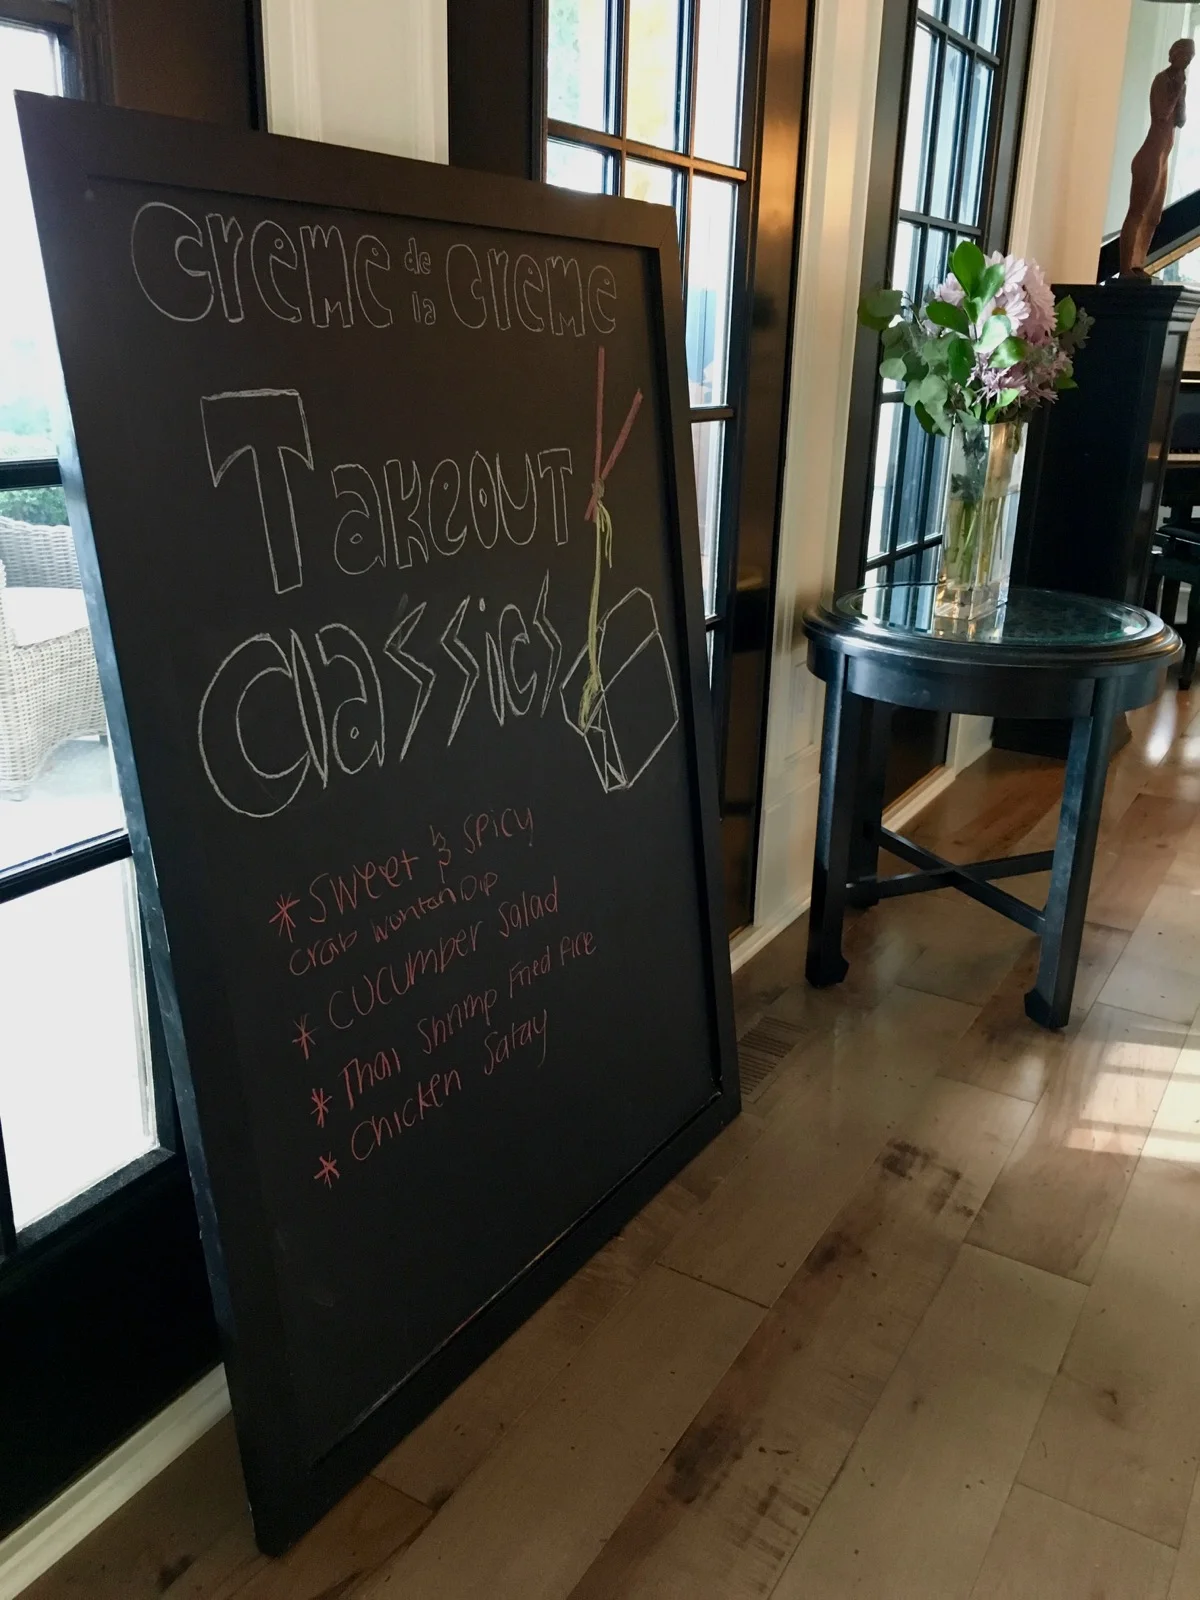 Creme de la Creme
Takeout
Classics
* Sweet & Spicy
Crab Wonton Dip
* Cucumber Salad
* Thai Shrimp Fried Rice
* Chicken Satay